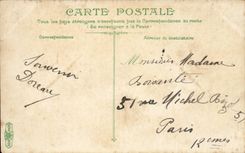 CARTE POSTALE
Tous les pays étrangers n'acceptent pas la Correspondance au recto
(Se renseigner à la Poste)
Correspondance
Adresse du destinataire
Souvenir
Monsieur Madame
51 rue Michel
Paris